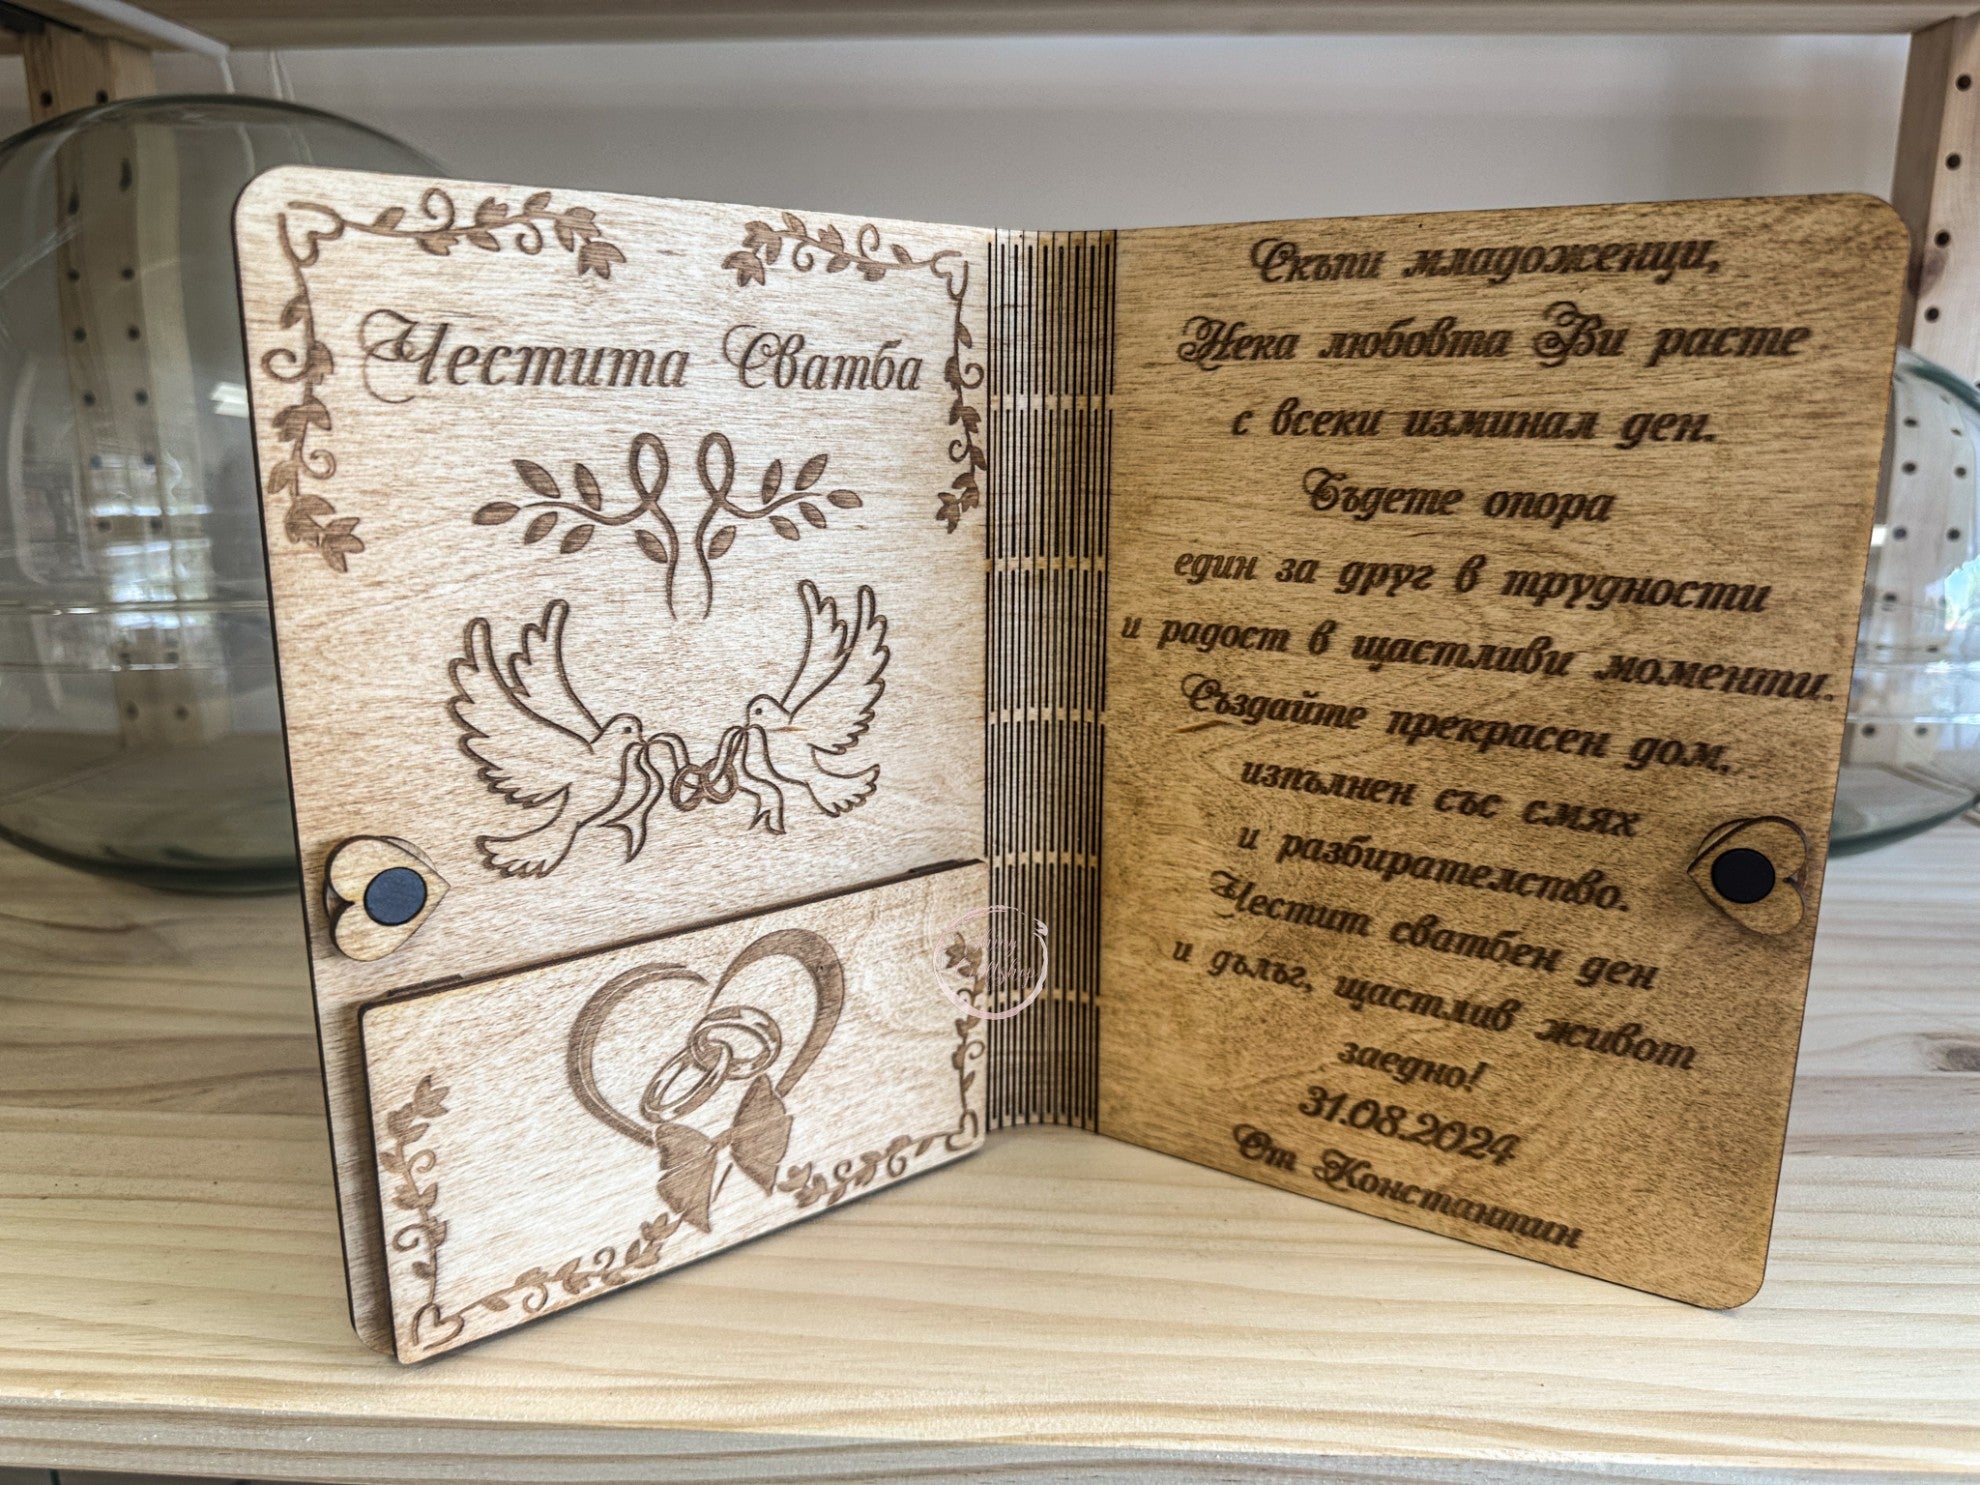 Честита Сватба
Скъпи младоженци,
Нека любовта Ви расте
с всеки изминал ден.
Бъдете опора
един за друг в трудности
и радост в щастливи моменти.
Създайте прекрасен дом,
изпълнен със смях
и разбирателство.
Честит сватбен ден
и дълъг, щастлив живот
заедно!
31.08.2024
От Константин